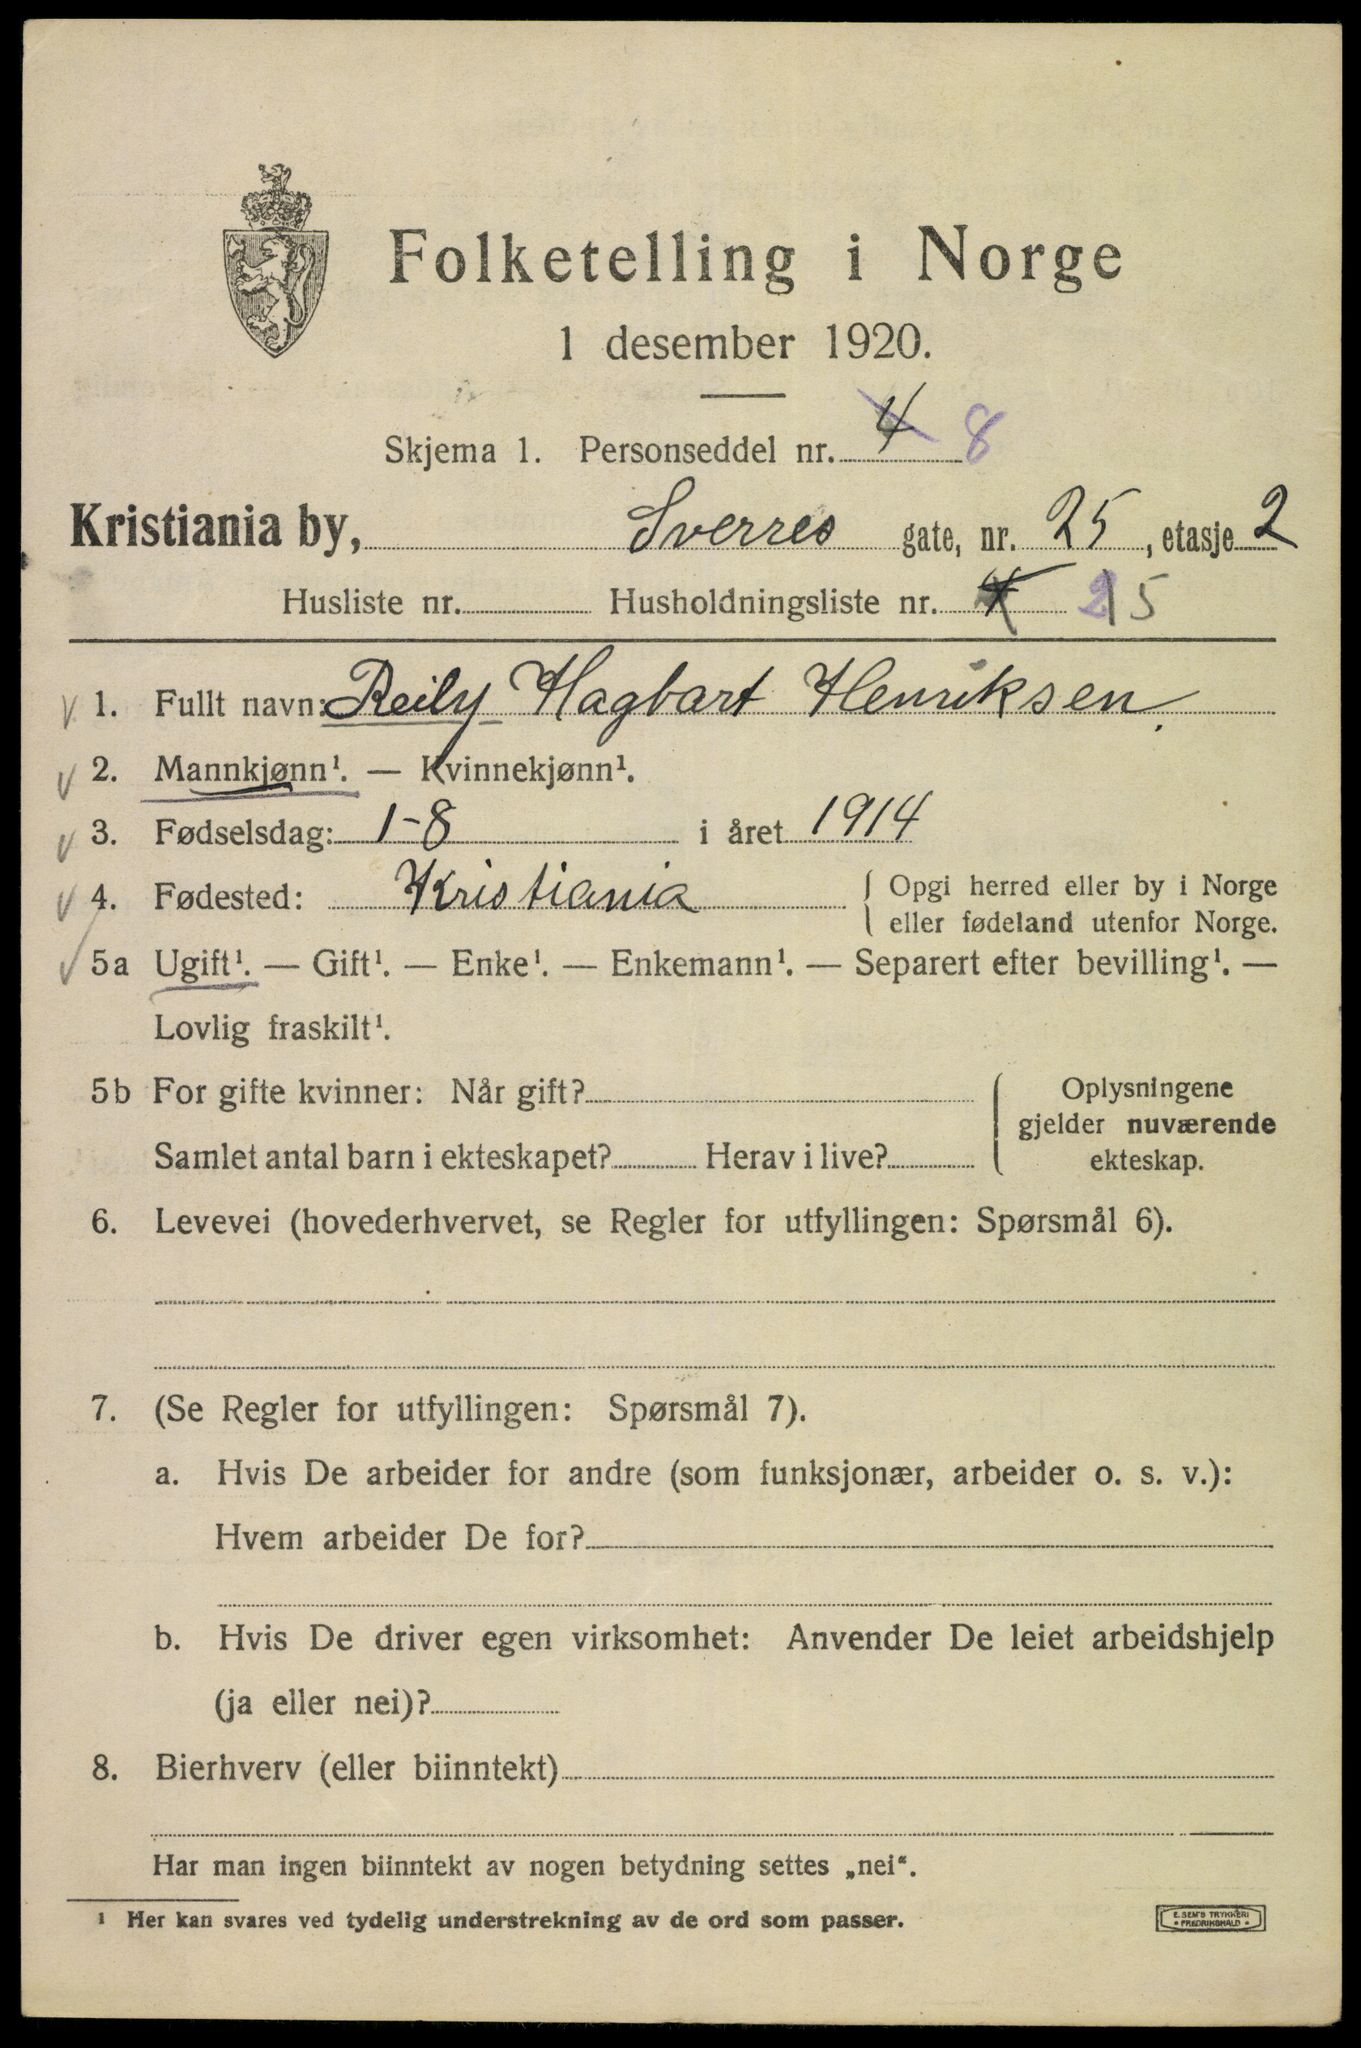 Folketelling i Norge
1 desember 1920.
Skjema 1. Personseddel nr. 4 8
Kristiania by, Sverres gate, nr. 25, etasje 2
Husliste nr. Husholdningsliste nr. 15
1. Fullt navn: Reily Hagbart Henriksen.
2. Mannkjønn¹. — Kvinnekjønn¹.
3. Fødselsdag: 1-8 i året 1914
4. Fødested: Kristiania { Opgi herred eller by i Norge
eller fødeland utenfor Norge.
5a Ugift¹. — Gift¹. — Enke¹. — Enkemann¹. — Separert efter bevilling¹. —
Lovlig fraskilt¹.
5b For gifte kvinner: Når gift? { Oplysningene
gjelder nuværende
Samlet antal barn i ekteskapet? Herav i live? ekteskap.
6. Levevei (hovederhvervet, se Regler for utfyllingen: Spørsmål 6).
7. (Se Regler for utfyllingen: Spørsmål 7).
a. Hvis De arbeider for andre (som funksjonær, arbeider o. s. v.):
Hvem arbeider De for?
b. Hvis De driver egen virksomhet: Anvender De leiet arbeidshjelp
(ja eller nei)?
8. Bierhverv (eller biinntekt)
Har man ingen biinntekt av nogen betydning settes „nei“.
¹ Her kan svares ved tydelig understrekning av de ord som passer.
E. SEM'S TRYKKERI
• FREDRIKSHALD •